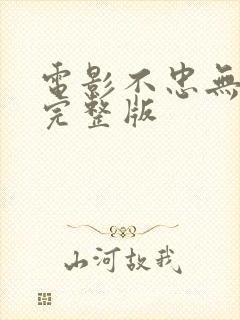 電影不忠無
完整版
山河故我